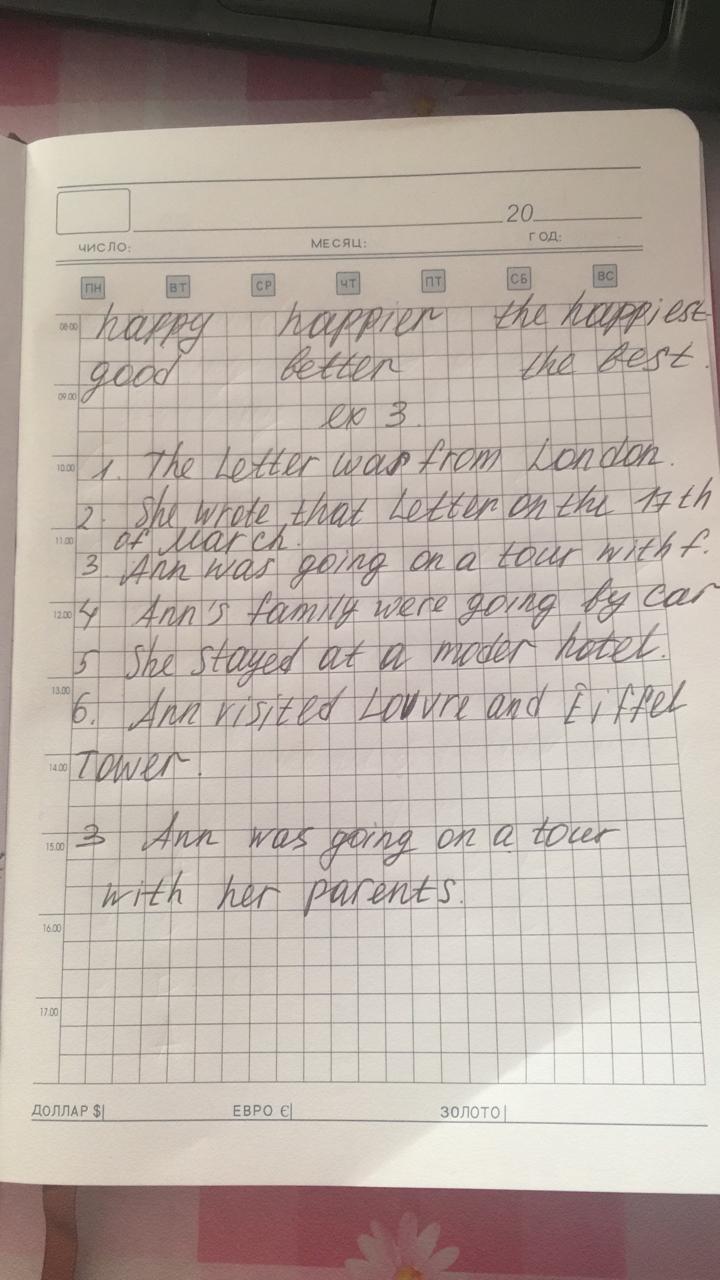 20
ЧИСЛО: МЕСЯЦ: ГОД:
ПН ВТ СР ЧТ ПТ СБ ВС
08:00 happy happier the happiest
good better the best.
09.00
ex 3.
10.00 1. The Letter was from London.
2. She wrote that Letter on the 17th
11.00 of March.
3 Ann was going on a tour with f.
12.00 4 Ann's family were going by car
5 She stayed at a moder hotel.
13.00
6. Ann visited Louvre and Eiffel
14.00 Tower.
15.00 3 Ann was going on a tour
with her parents.
16.00
17.00
ДОЛЛАР $| ЕВРО €| ЗОЛОТО|